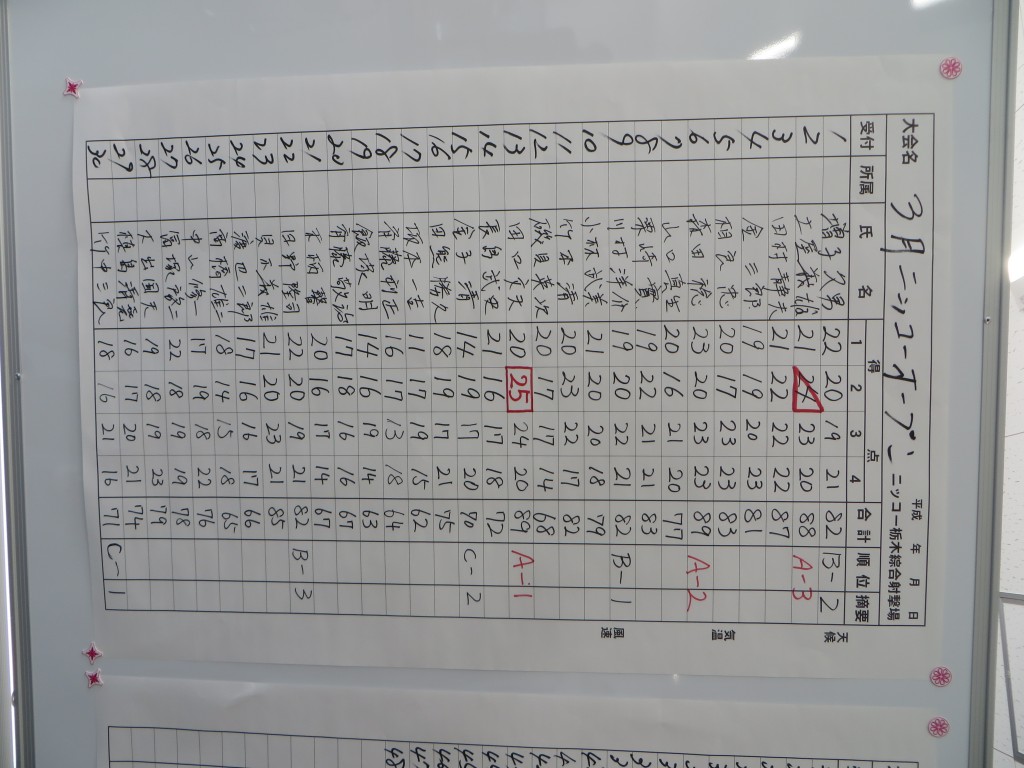 大会名 3月ニッコーオープン 平成 年 月 日
ニッコー栃木綜合射撃場
受付 所属 氏名 得点 合計 順位 摘要
1 2 3 4
1 増子久男 22 20 19 21 82 B-2
2 土屋義雄 21 23 20 88 A-3
3 田村 21 22 22 22 87
4 金三郎 19 19 20 23 81
5 相良忠 20 17 23 23 83
6 森田稔 23 20 23 23 89 A-2
7 山口真生 20 16 21 20 77
8 栗崎實 19 22 21 21 83
9 川村洋介 19 20 22 21 82 B-1
10 小林武美 21 20 20 18 79
11 竹本清 20 23 22 17 82
12 磯貝英次 20 17 17 14 68
13 田口文夫 20 25 24 20 89 A-1
14 長島武史 21 16 17 18 72
15 金子清 14 19 17 20 70 C-2
16 田熊勝久 18 19 17 21 75
17 坂本一生 11 17 19 15 62
18 斉藤 正 16 17 13 18 64
19 飯塚明 14 16 19 14 63
20 斉藤敬治 17 18 16 16 67
21 20 16 17 14 67
22 日野隆司 22 20 19 21 82 B-3
23 貝木義雄 21 20 23 21 85
24 渡辺巳三郎 17 16 16 17 66
25 高橋雄二 18 14 15 18 65
26 中山修一 17 19 18 22 76
27 22 18 19 19 78
28 大出国夫 19 18 19 23 79
29 穂島清 16 17 20 21 74
30 竹中三 18 16 21 16 71 C-1
天候
気温
風速